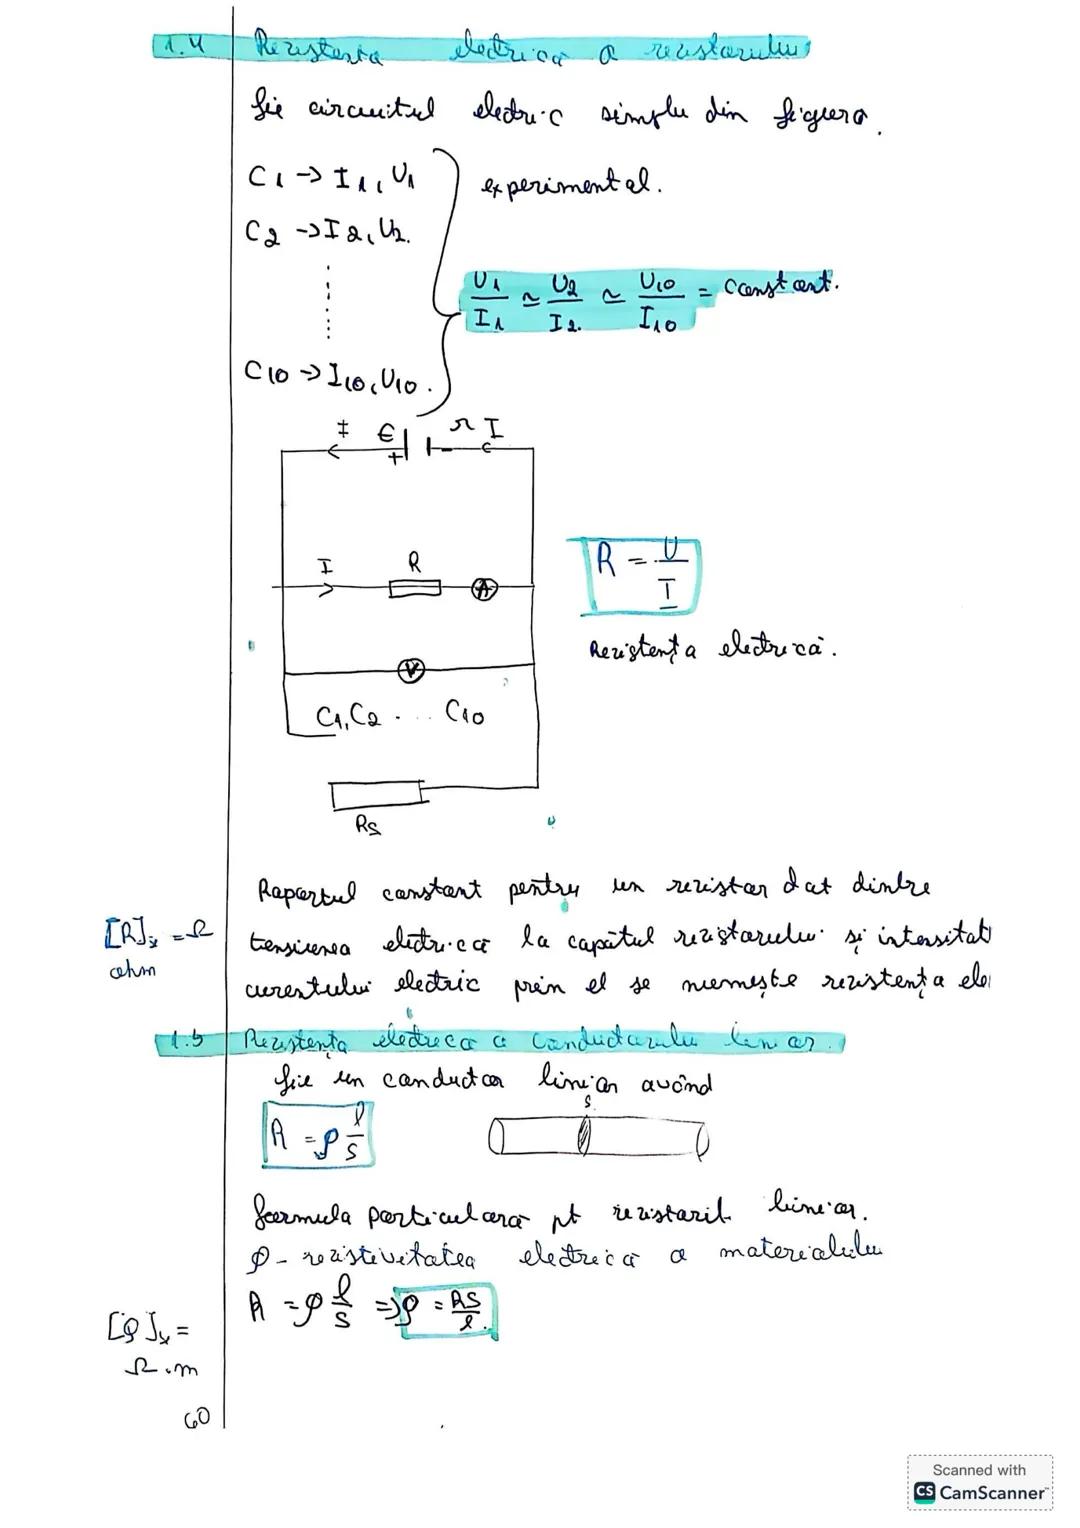 1.4 Rezistența electrică a rezistorului
Fie circuitul electric simplu din figura.
C1 -> I1, U1
experimental.
C2 -> I2, U2.
U1/I1 ≃ U2/I2. ≃ U10/I10 = constant.
C10 -> I10, U10.
I E r I
+ -
I R A
R = U/I
Rezistența electrică.
V
C1, C2 .... C10
Rs
Raportul constant pentru un rezistor dat dintre
[R]ᵢ = Ω tensiunea electrică la capătul rezistorului și intensitat
ohm
curentului electric prin el se numește rezistența ele
1.5 Rezistența electrică a conductorului liniar.
Fie un conductor liniar având
S
R = ρ l/S
formula particulară pt rezistorii liniar.
ρ - rezistivitatea electrică a materialului
R = ρ l/S => ρ = RS/l.
[ρ]ᵢ =
Ω·m
60
Scanned with
CS CamScanner